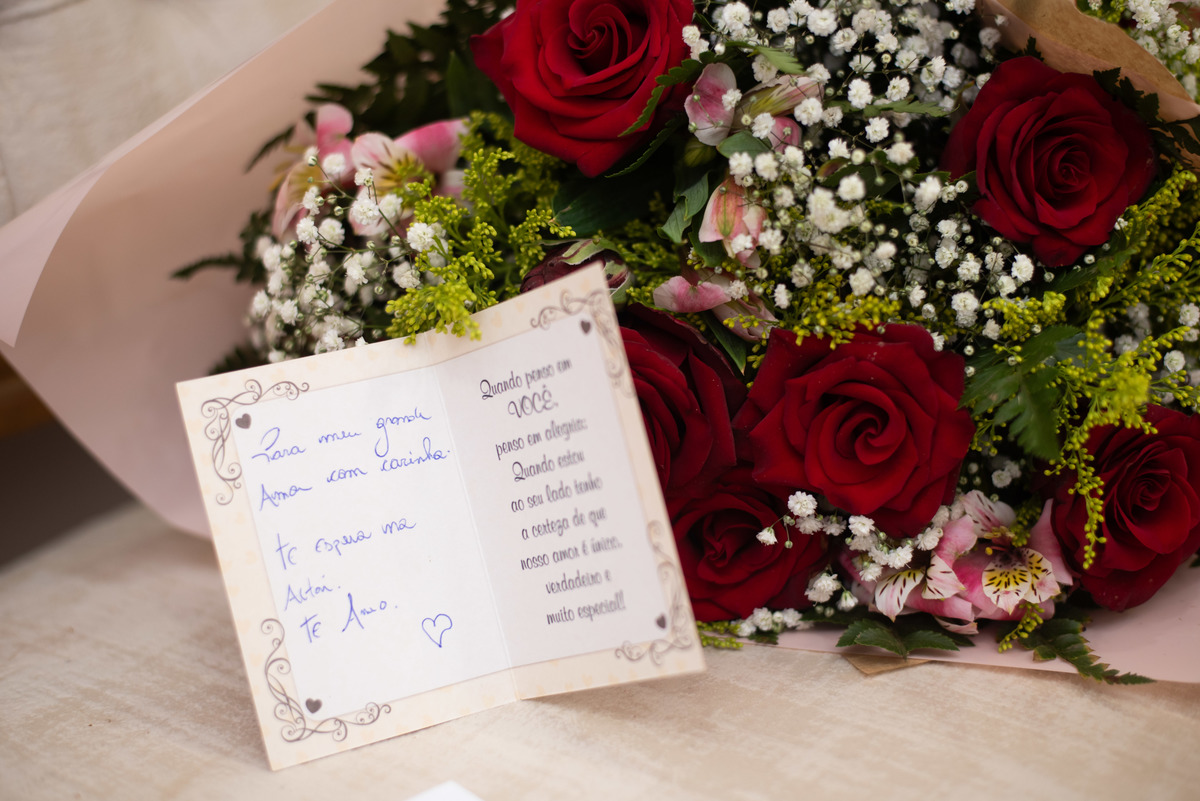 Para meu grande
Amor com carinho.
te espero no
Altar.
te Amo.
Quando penso em
VOCÊ,
penso em alegria;
Quando estou
ao seu lado tenho
a certeza de que
nosso amor é único,
verdadeiro e
muito especial!!